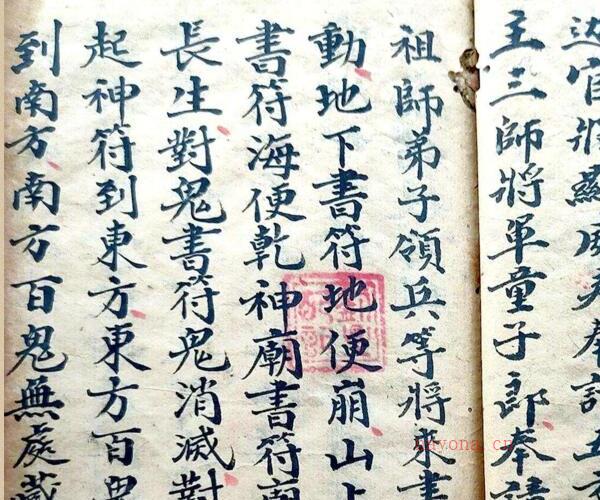 官將
主三師將軍童子郎奉請
祖師弟子領兵等將來書
動地下書符地便崩山上
書符海便乾神廟書符廟
長生對鬼書符鬼消滅對
起神符到東方東方百鬼
到南方南方百鬼無處藏